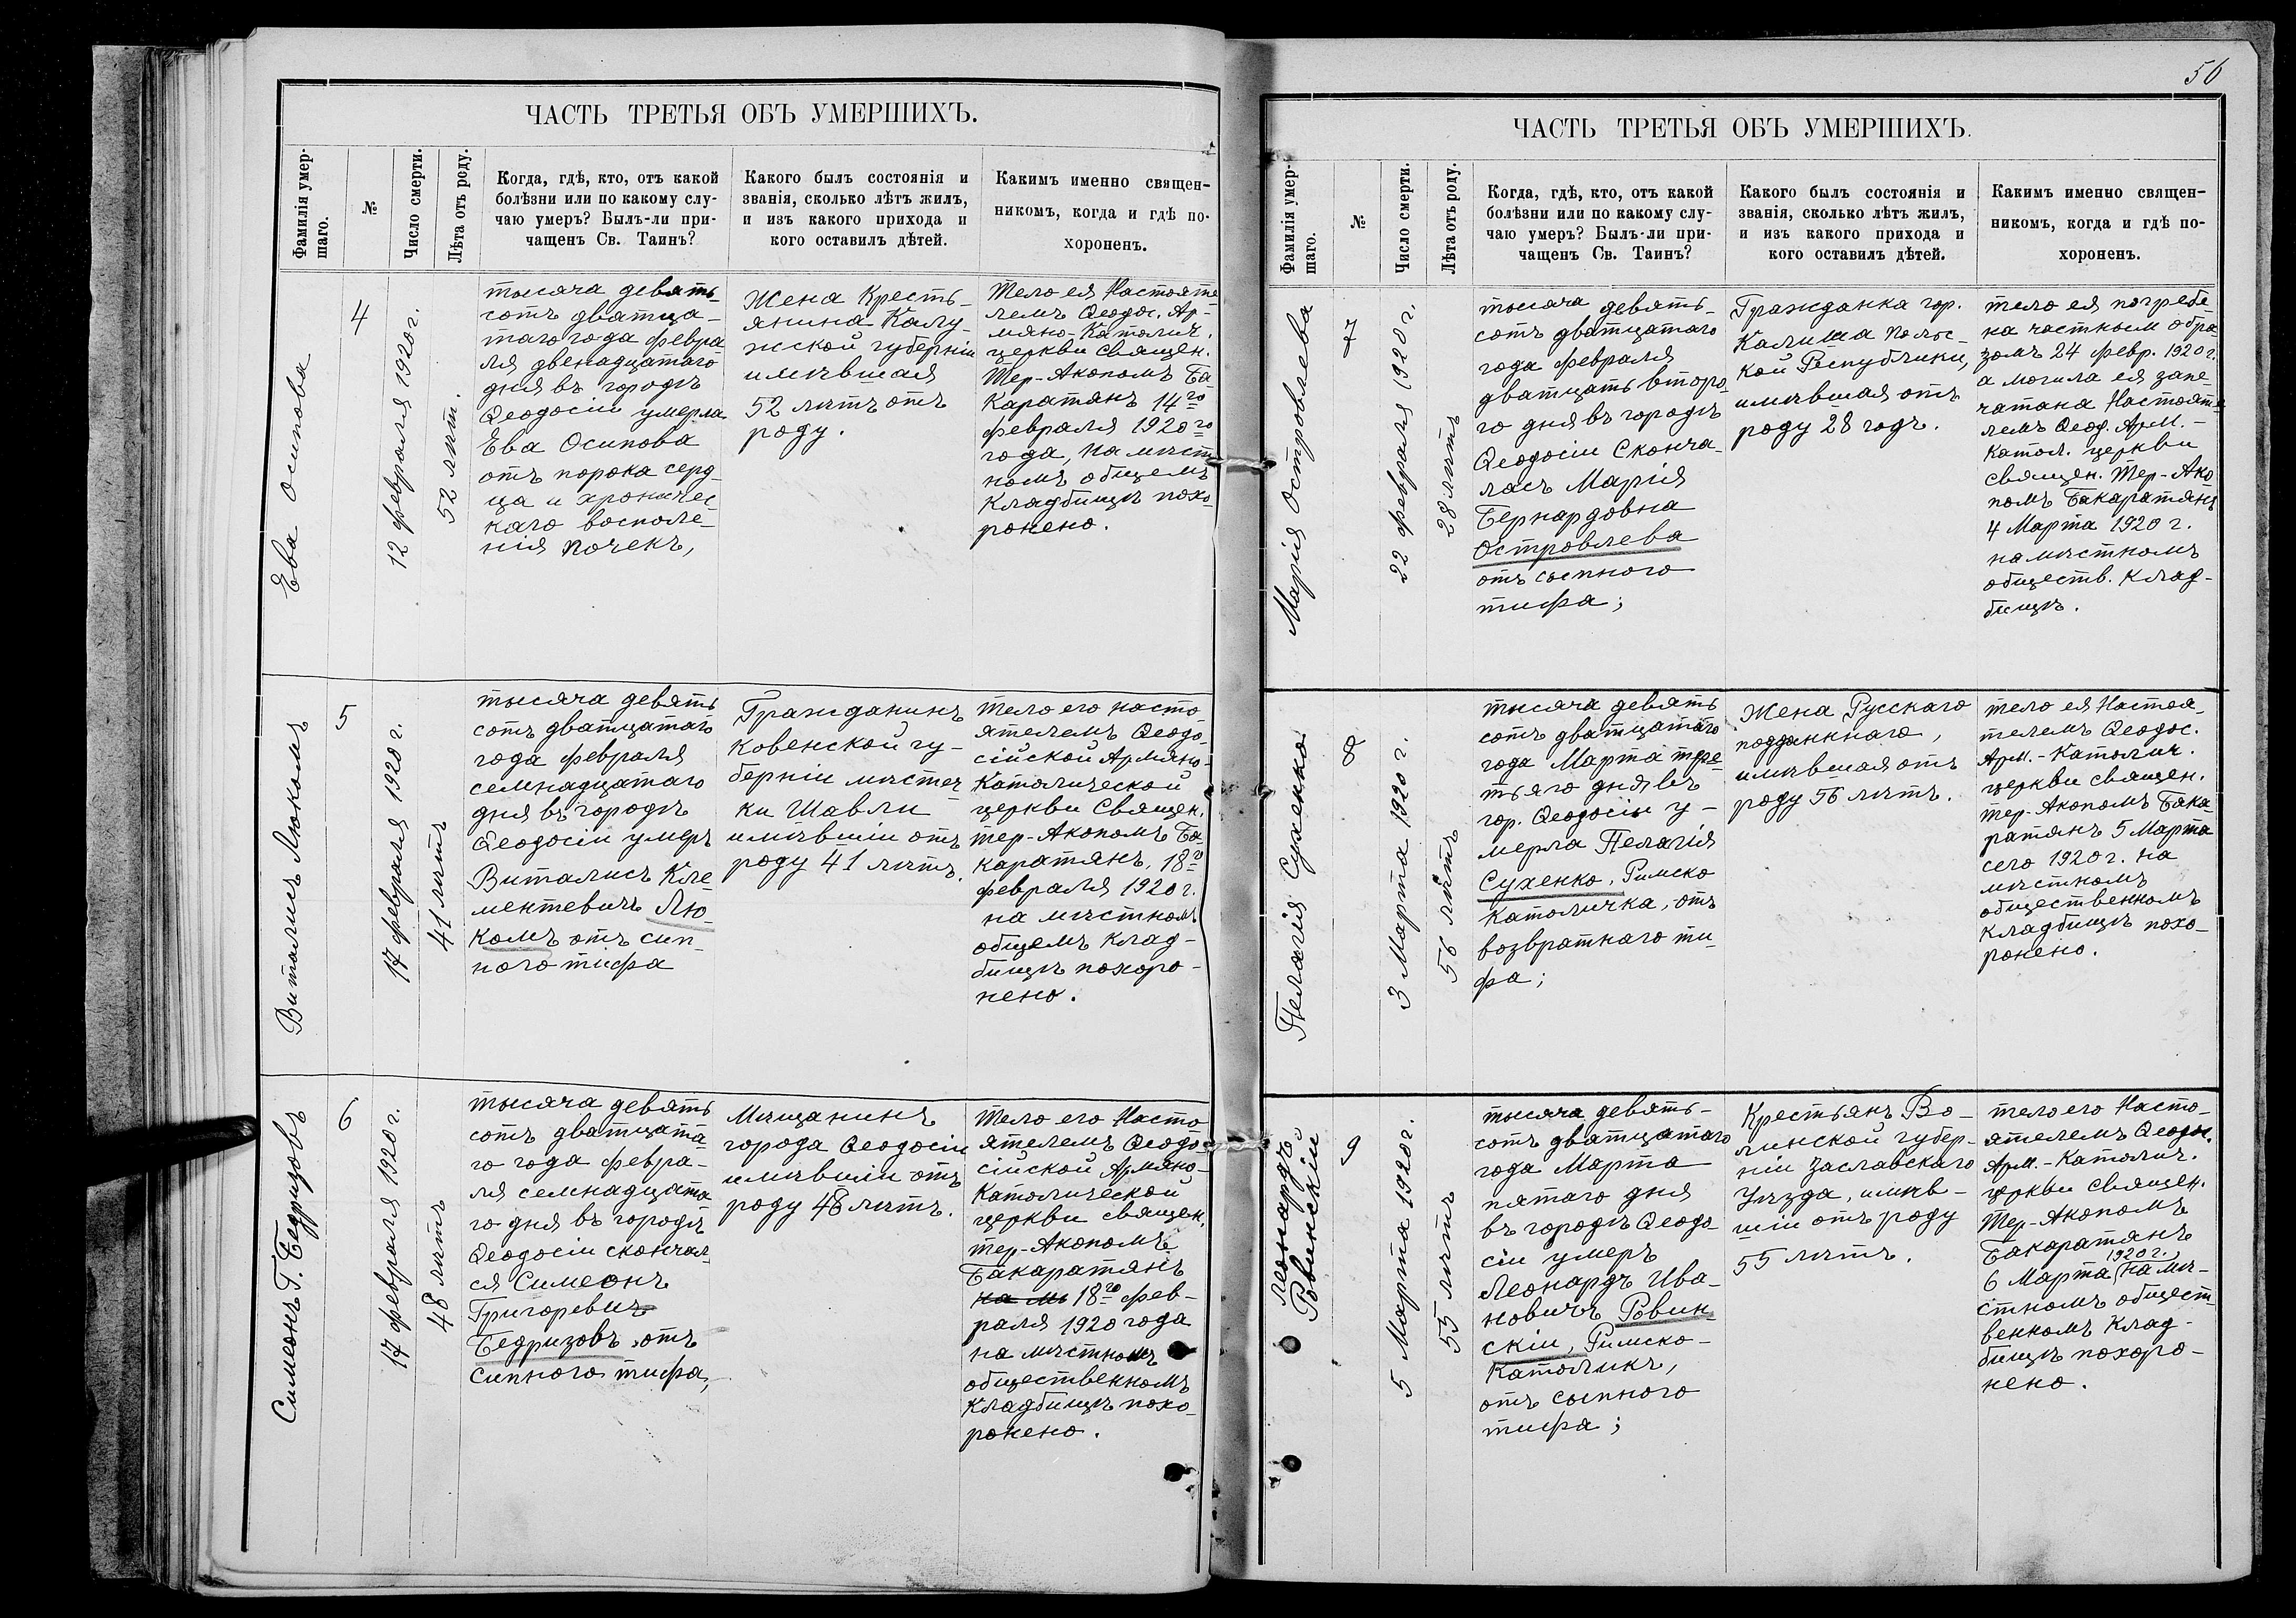 ЧАСТЬ ТРЕТЬЯ ОБЪ УМЕРШИХЪ.
Фамилія умер-
шаго.
№
Число смерти.
Лѣта отъ роду.
Когда, гдѣ, кто, отъ какой
болѣзни или по какому слу-
чаю умеръ? Былъ-ли при-
чащенъ Св. Таинъ?
Какого былъ состоянія и
званія, сколько лѣтъ жилъ,
и изъ какого прихода и
кого оставилъ дѣтей.
Какимъ именно священ-
никомъ, когда и гдѣ по-
хороненъ.
Ева Осипова
4
12 февраля 1920 г.
52 лѣт.
тысяча девять-
сотъ дватца-
таго года февра
ля двенадцатаго
дня въ городѣ
Ѳеодосіи умерла
Ева Осипова
отъ порока серд-
ца и хроничес
каго восполе-
нія почекъ,
Жена Кресть-
янина Калу-
жской губерніи
имѣвшая
52 лѣтъ отъ
роду.
Тело ея Настояте
лемъ Ѳеодос. Ар-
мяно-Католич.
церкви Священ.
Тер-Акопомъ Ба
Каратянъ 14го
февраля 1920го
года, на мѣст
номъ общемъ
Кладбищѣ похо-
ронено.
Виталисъ Люкомъ
5
17 февраля 1920 г.
41 лѣтъ
тысяча девять
сотъ дватцатаго
года февраля
семнадцатаго
дня въ городѣ
Ѳеодосіи умеръ
Виталисъ Кле-
ментевичъ Лю-
комъ отъ сип-
ного тифа
Гражданинъ
Ковенской гу-
берніи мѣстеч
ки Шавли
имѣвшіи отъ
роду 41 лѣтъ.
Тело его насто
ятелемъ Ѳеодо-
сійской Армяно-
Католической
церкви Священ.
Тер-Акопомъ Ба-
каратянъ, 18го
февраля 1920 г.
на мѣстномъ
общемъ клад-
бищѣ похоро-
нено.
Симеонъ Г. Бедризовъ
6
17 февраля 1920 г.
48 лѣтъ
тысяча девять
сотъ дватцата
го года февра-
ля семнадцата
го дня въ городѣ
Ѳеодосіи скончал
ся Симеонъ
Григоревичъ
Бедризовъ отъ
сипного тифа,
Мѣщанинъ
города Ѳеодосіи
имѣвшіи отъ
роду 48 лѣтъ.
Тело его Насто
ятелемъ Ѳеодо-
сійской Армяно-
Католической
церкви священ.
тер-Акопомъ
Бакаратянъ
на мѣ 18го фев-
раля 1920 года
на мѣстномъ
общественномъ
Кладбищѣ похо-
ронено.
56
ЧАСТЬ ТРЕТЬЯ ОБЪ УМЕРШИХЪ.
Фамилія умер-
шаго.
№
Число смерти.
Лѣта отъ роду.
Когда, гдѣ, кто, отъ какой
болѣзни или по какому слу-
чаю умеръ? Былъ-ли при-
чащенъ Св. Таинъ?
Какого былъ состоянія и
званія, сколько лѣтъ жилъ,
и изъ какого прихода и
кого оставилъ дѣтей.
Какимъ именно священ-
никомъ, когда и гдѣ по-
хороненъ.
Марія Островлева
7
22 февраля 1920 г.
28 лѣтъ
тысяча девять-
сотъ дватцатаго
года февраля
дватцать второ
го дня въ городѣ
Ѳеодосіи Сконча-
лась Марія
Бернардовна
Островлева
отъ сыпного
тифа;
Гражданка гор.
Калиша Польс-
кой Республики,
имѣвшая отъ
роду 28 годъ.
тело ея погребе
на частным обра
зомъ 24 февр. 1920 г.
а могила ея запе-
чатана Настояте
лемъ Ѳеод. Арм.-
Катол. церкви
священ. Тер-Ако
помъ Бакаратянъ
4 Марта 1920 г.
на мѣстномъ
обществ. клад-
бищѣ.
Пелагія Сухенко
8
3 Марта 1920 г.
56 лѣтъ
тысяча девять
сотъ дватцатаго
года Марта тре
тьяго дня въ
гор. Ѳеодосіи у-
мерла Пелагія
Сухенко, Римско
католичка, отъ
возвратнаго ти-
фа;
Жена Русскаго
подданнаго,
имѣвшая отъ
роду 56 лѣтъ.
тело ея Настоя-
телемъ Ѳеодос.
Арм.-Католич.
церкви священ.
тер-Акопомъ Бака-
ратянъ 5 Марта
сего 1920 г. на
мѣстномъ
общественномъ
кладбищѣ похо-
ронено.
Леонардъ
Ровинскіи
9
5 Марта 1920 г.
55 лѣтъ
тысяча девять-
сотъ дватцатаго
года Марта
пятаго дня
въ городѣ Ѳеодо
сіи умеръ
Леонардъ Ива-
новичъ Ровин-
скіи, Римско-
Католикъ,
отъ сыпного
тифа;
Крестьянъ Во-
линской губер-
ніи Заславскаго
Уѣзда, имѣв-
шіи отъ роду
55 лѣтъ.
тело его Насто-
ятелемъ Ѳеодос.
Арм.-Католич.
церкви священ.
Тер-Акопомъ
Бакаратянъ
1920 г.
6 Марта на мѣ-
стномъ общест-
венномъ клад-
бищѣ похоро-
нено.